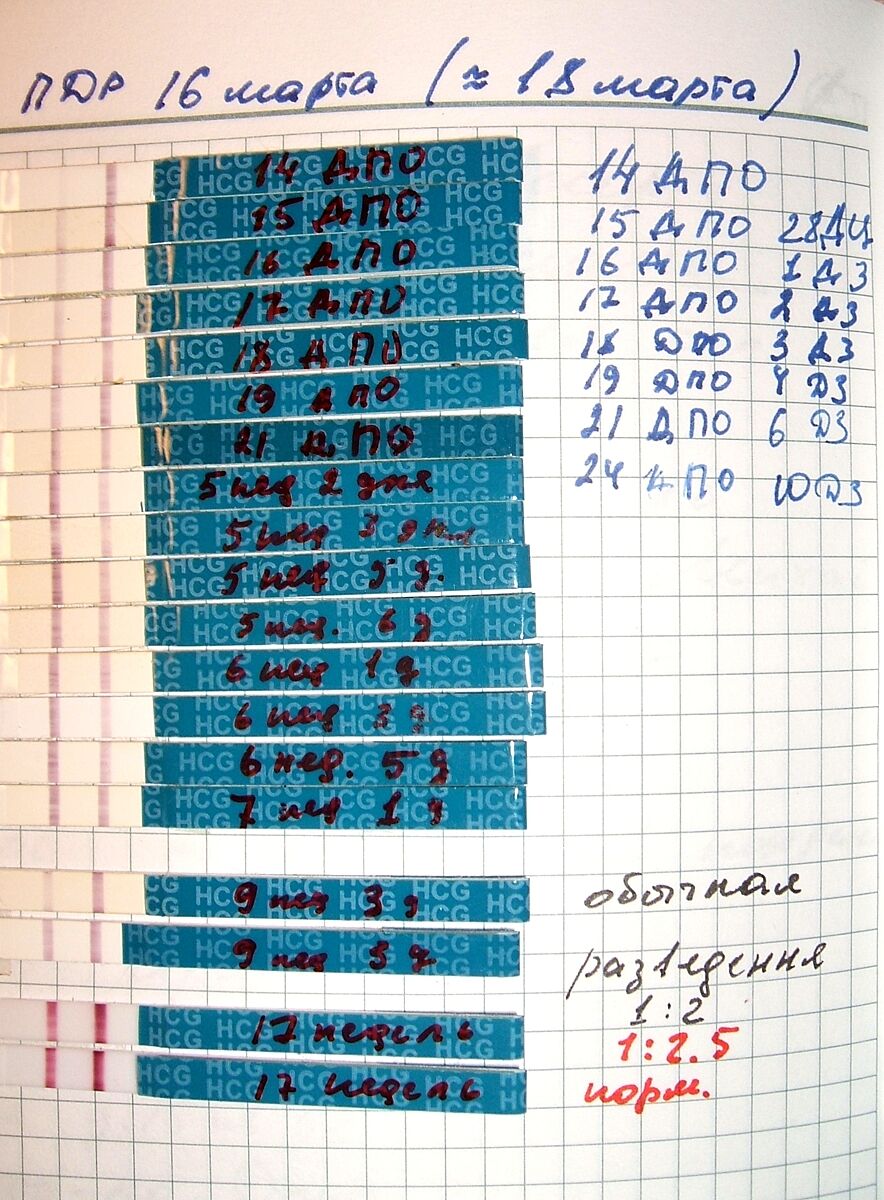 ПДР 16 марта (≈ 18 марта)
HCG 14 ДПО 14 ДПО
HCG 15 ДПО 15 ДПО 28ДЦ
HCG 16 ДПО 16 ДПО 1 ДЗ
HCG 17 ДПО 17 ДПО 2 ДЗ
HCG 18 ДПО 18 ДПО 3 ДЗ
HCG 19 ДПО 19 ДПО 4 ДЗ
HCG 21 ДПО 21 ДПО 6 ДЗ
HCG 5 нед 2 дня 24 ДПО 10 ДЗ
HCG 5 нед 3 дня
HCG 5 нед 5 д.
HCG 5 нед. 6 д
HCG 6 нед 1 д
HCG 6 нед 3 д
HCG 6 нед. 5 д
HCG 7 нед 1 д
HCG 9 нед 3 д обычная
HCG 9 нед 5 д разведення
1:2
HCG 17 недель 1:2.5
HCG 17 недель норм.